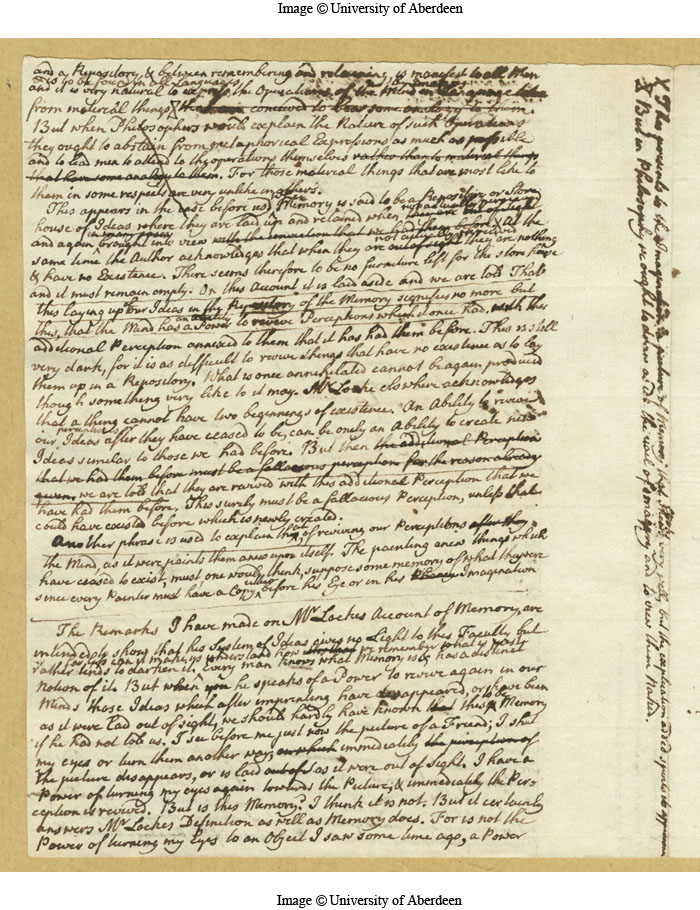 Image © University of Aberdeen
and a Repository, & between remembering and retaining, is manifest to all Men
& is to be found in all Languages
and it is very natural to express the Operations of the Mind in Language
from material things
But when Philosophers would explain the Nature of such Operations
they ought to abstain from metaphorical Expressions as much as possible
and to lead men to attend to the operations themselves rather than to material things
that have some analogy to them. For those material things that are most like to
them in some respects are very unlike in others.
This appears in the case before us. Memory is said to be a Repository or Store
house of Ideas where they are laid up and retained when
and again brought into view with the conviction that we had them before & At the
same time the Author acknowledges that when they are not actually perceived they are nothing
& have no Existence. There seems therefore to be no furniture left for the store house
and it must remain empty. On this Account it is laid aside and we are told That
this laying up our Ideas in the Repository of the Memory signifies no more but
this, that the Mind has a Power to revive Perceptions which it once had, with this
additional Perception annexed to them that it has had them before. This is still
very dark, for it is as difficult to revive things that have no existence as to lay
them up in a Repository. What is once annihilated cannot be again produced
though something very like to it may. Mr Locke elswhere acknowledges
that a thing cannot have two beginnings of existence. An Ability to revive
our Ideas after they have ceased to be, can be only an Ability to create new
Ideas similar to those we had before. But then the additional Perception
that we had them before must be a fallacious perception for the reason already
given, we are told that they are revived with this additional Perception that we
have had them before. This surely must be a fallacious Perception, unless that
could have existed before which is newly created.
Another phrase is used to explain this of reviving our Perceptions after they
the Mind, as it were paints them anew upon itself. The painting anew things which
have ceased to exist, must one would think, suppose some memory of what they were
since every Painter must have a Copy either before his Eye or in his Imagination
The Remarks I have made on Mr Lockes Account of Memory, are
intended to show that his System of Ideas gives no Light to this Faculty but
rather tends to darken it
as it can make us understand how we remember what is past
every man knows what Memory is & has a distinct
Notion of it. But when he speaks of a Power to revive again in our
Minds those Ideas which after imprinting have disappeared, or have been
as it were laid out of sight, we should hardly have known this to be Memory
if he had not told us. I see before me just now the picture of a Friend; I shut
my eyes or turn them another way, immediately the perception of
the picture disappears, or is laid out of as it were out of sight. I have a
Power of turning my eyes again towards the Picture, & immediately the Per-
ception is revived. But is this Memory? I think it is not. But it certainly
answers Mr Lockes Definition as well as Memory does. For is not the
Power of turning my Eyes to an Object I saw some time ago, a Power
X This presents to the Imagination a picture of memory that very well but the explication added spoils its appearance
X But in Philosophy we ought to draw aside the veil of imagery and to view them Naked.
Image © University of Aberdeen